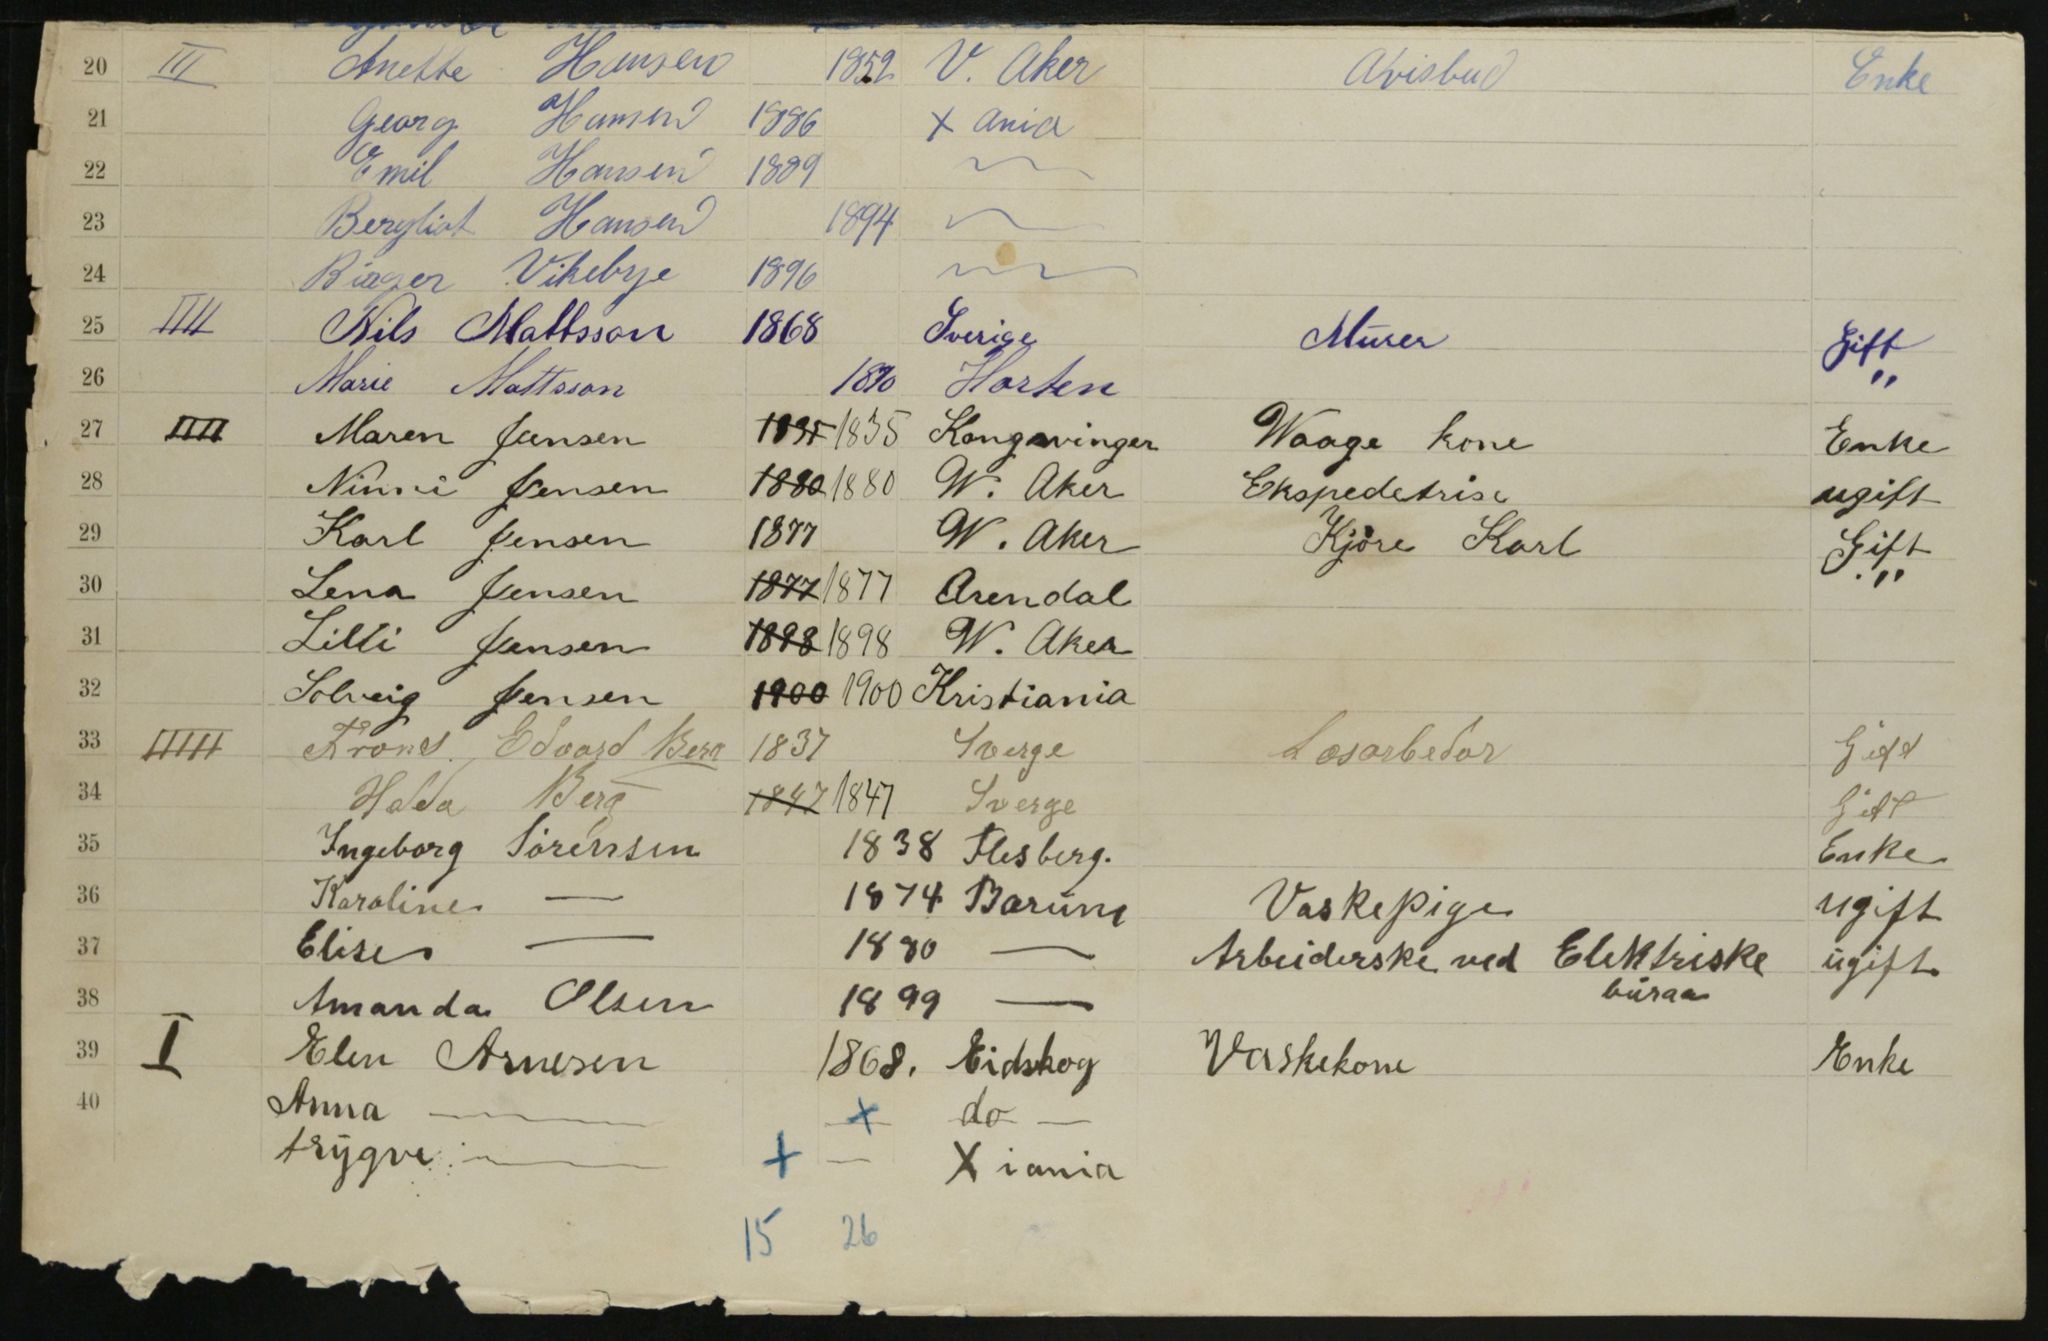 20 III Anette Hansen 1852 V. Aker Avisbud Enke
21 Georg Hansen 1886 X ania
22 Emil Hansen 1889
23 Bergliot Hansen 1894
24 Birger Vikebye 1896
25 IIII Nils Mattsson 1868 Sverige Murer Gift
26 Marie Mattsson 1870 Horten "
27 IIII Maren Jensen 1835 1835 Kongsvinger Waage kone Enke
28 Ninni Jensen 1880 1880 W. Aker Ekspedetrise ugift
29 Karl Jensen 1877 W. Aker Kjöre Karl Gift
30 Lena Jensen 1877 1877 Arendal "
31 Lilli Jensen 1898 1898 W. Aker
32 Solveig Jensen 1900 1900 Kristiania
33 IIIII Frans Edvard Berg 1837 Sverge Losarbedar Gift
34 Berg 1847 1847 Sverge Gift
35 Ingeborg Sörensen 1838 Flesberg. Enke
36 Karoline — 1874 Barum Vaskepige ugift
37 Elise — 1880 — Arbeiderske ved Elektriske ugift
buraa
38 Amanda Olsen 1899 —
39 I Elen Arnesen 1868. Eidskog Vaskekone Enke
40 Anna — + do —
trygve — + — X iania
15 26